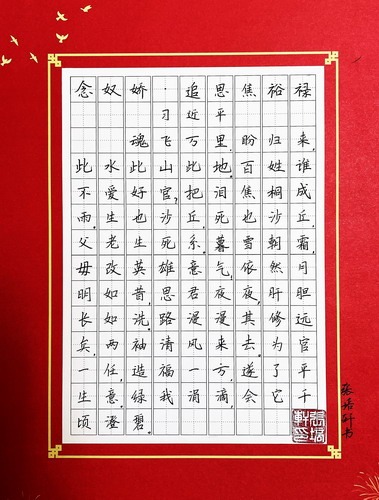 念奴娇·追思焦裕禄
习近平
魂飞万里,盼归来,
此水此山此地。百姓谁
不爱好官?把泪焦桐成
雨。生也沙丘,死也沙丘,
父老生死系。暮雪朝霜,
毋改英雄意气!依然月
明如昔,思君夜夜,肝胆
长如洗。路漫漫其修远
矣,两袖清风来去。为官
一任,造福一方,遂了平
生意。绿我涓滴,会它千
顷澄碧。